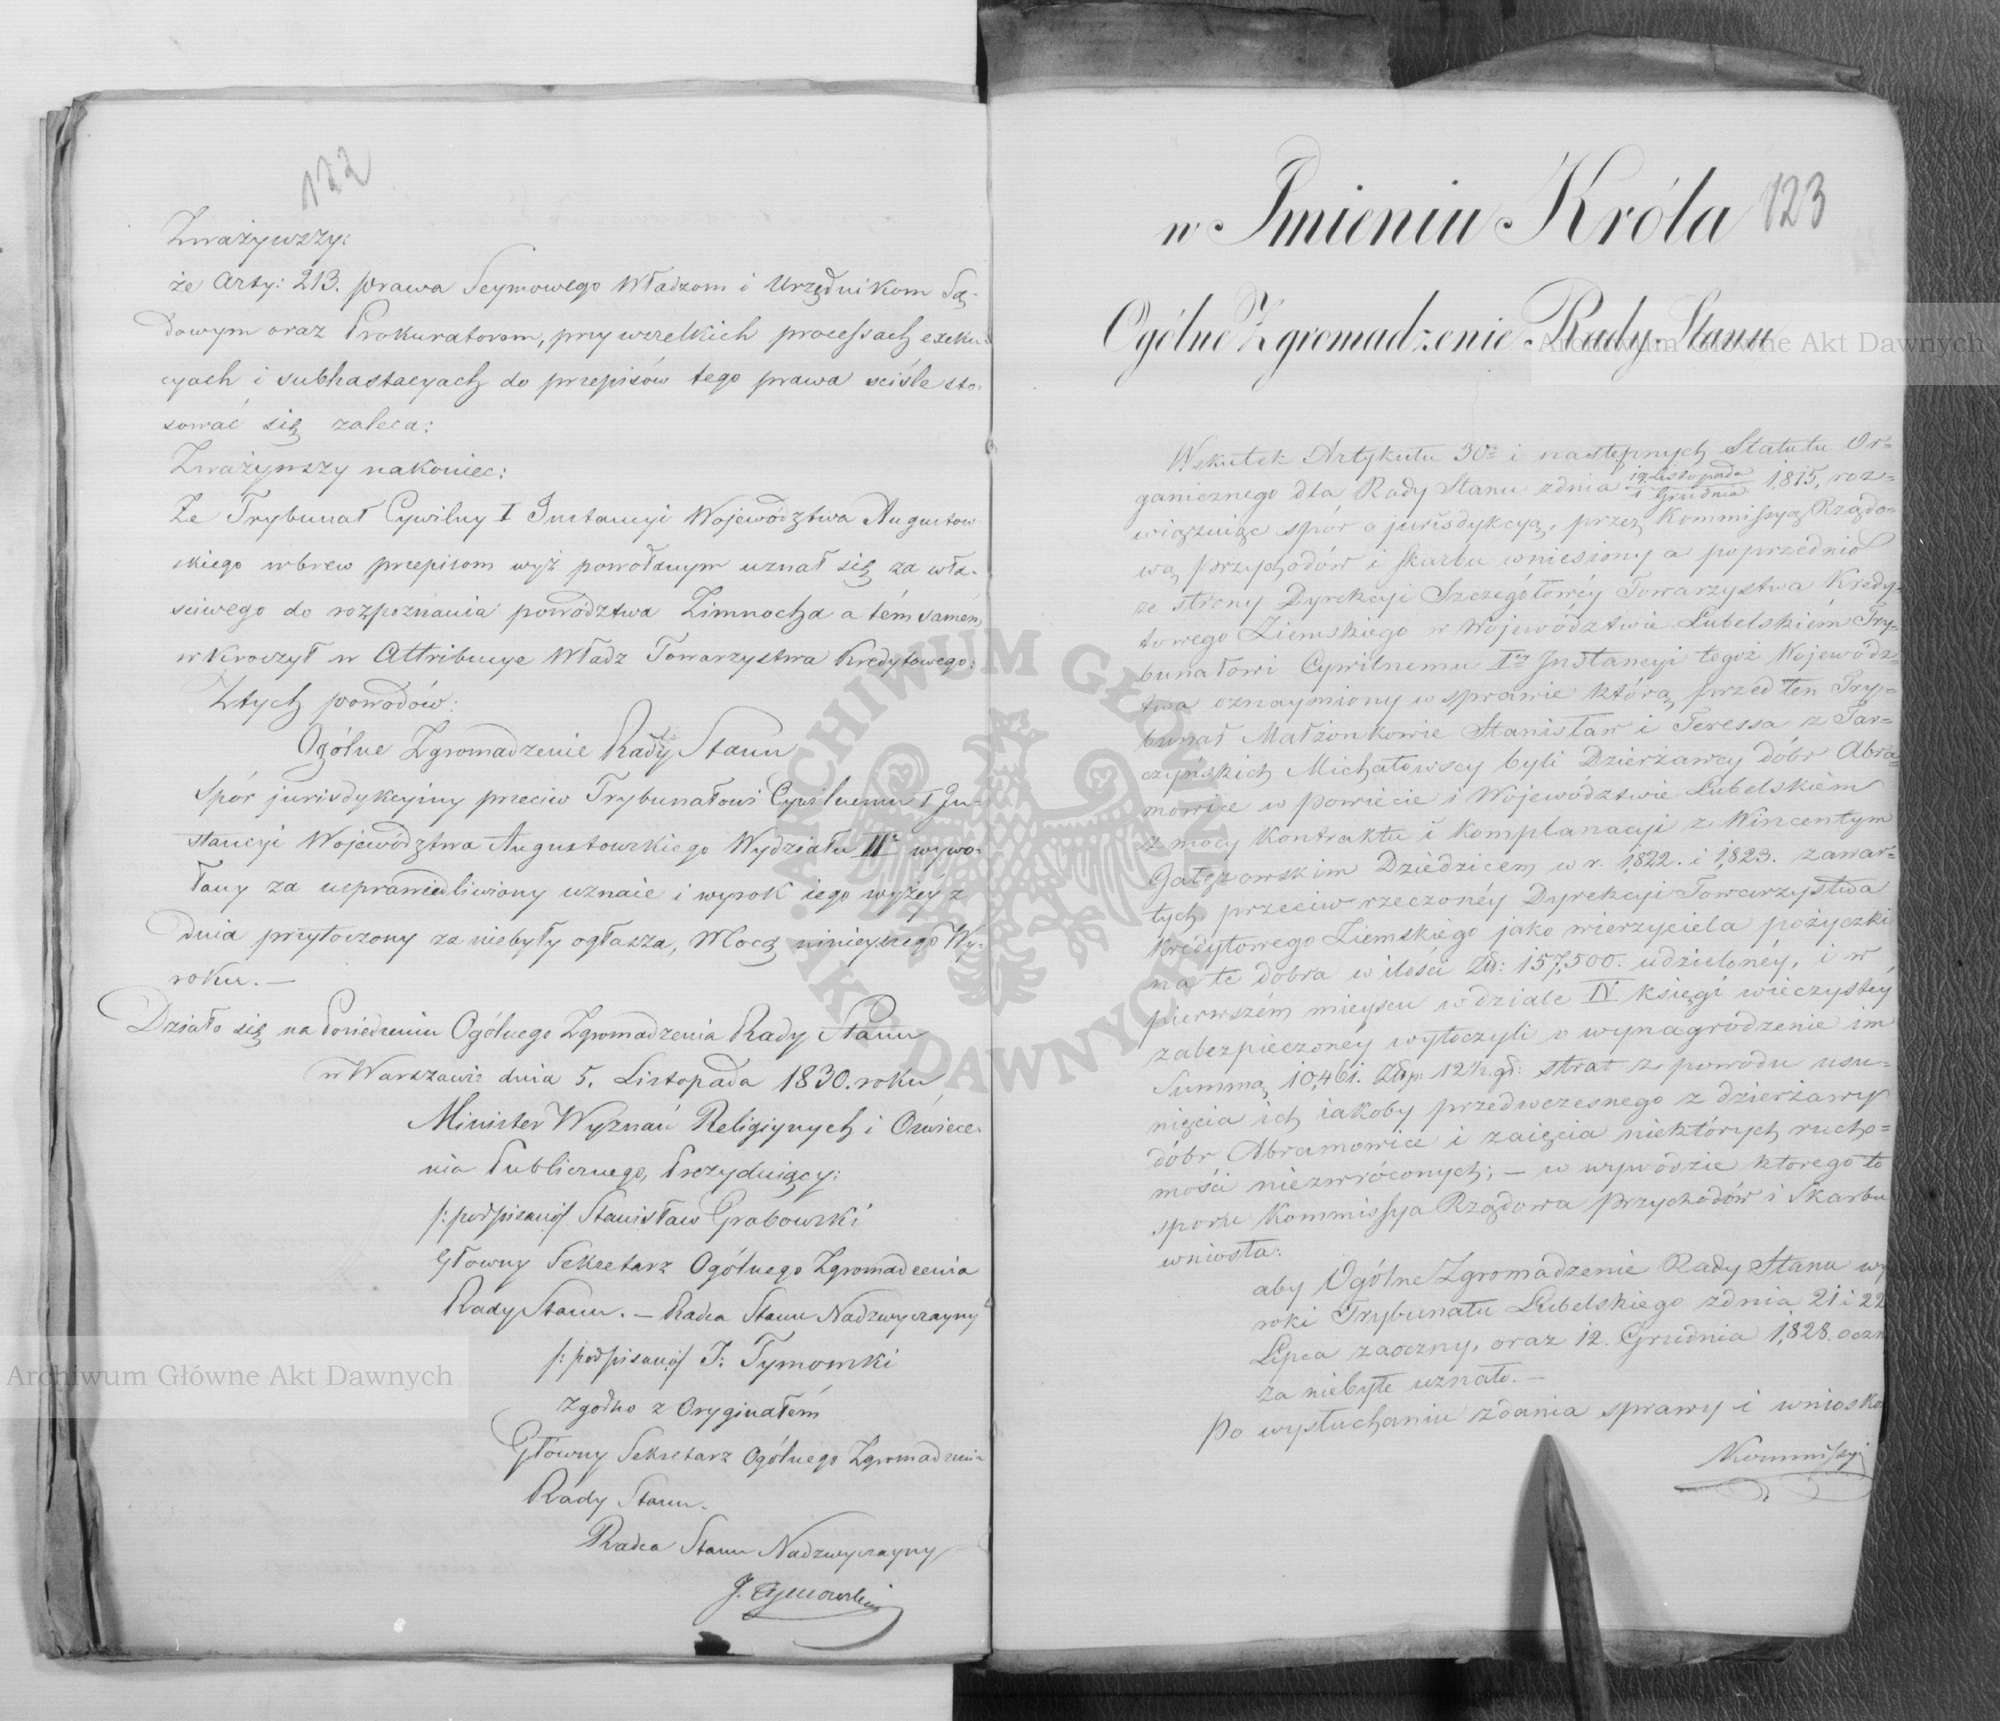 122
Zważywszy:
że Arty: 213. prawa Seymowego Władzom i Urzędnikom Są-
dowym oraz Prokuratorom, przy wszelkich processach exeku-
cyach i subhastacyach do przepisów tego prawa sciśle sto-
sować się zaleca:
Zważywszy nakoniec:
Ze Trybunał Cywilny I Instancyi Województwa Augustow-
skiego wbrew przepisom wyż powołanym uznał się za wła-
sciwego do rozpoznania powództwa Zimnocha a tém samém
wkroczył w Attribucye Władz Towarzystwa Kredytowego:
Ztych powodów:
Ogólne Zgromadzenie Rady Stanu
Spór jurisdykcyiny przeciw Trybunałowi Cywilnemu I In-
stancyi Województwa Augustowskiego Wydziału II° wywo-
łany za usprawiedliwiony uznaie i wyrok iego wyżéy z
dnia przytoczony za niebyły ogłasza, Mocą ninieyszego Wy-
roku. —
Działo się na Posiedzeniu Ogólnego Zgromadzenia Rady Stanu
w Warszawie dnia 5. Listopada 1830. roku
Minister Wyznań Religiynych i Oświece-
nia Publicznego, Prezyduiący:
/: podpisano/ Stanisław Grabowski
Główny Sekretarz Ogólnego Zgromadzenia
Rady Stanu. — Radca Stanu Nadzwyczayny
/: podpisano/ J: Tymowski
Zgodno z Oryginałem
Główny Sekretarz Ogólnego Zgromadzenia
Rady Stanu.
Radca Stanu Nadzwyczayny
J. Tymowski
123
w Imieniu Króla
Ogólne Zgromadzenie Rady Stanu
Wskutek Artykułu 30° i następnych Statutu Or-
ganicznego dla Rady Stanu z dnia 19 Listopada / 1 Grudnia 1,815, roz-
wiązuiąc spór o jurisdykcyą, przez Kommissyą Rządo-
wą Przychodów i Skarbu wniesiony a poprzednio
ze strony Dyrekcyi Szczegółowéy Towarzystwa Kredy-
towego Ziemskiego w Województwie Lubelskiém Try-
bunałowi Cywilnemu I Instancyi tegoż Wojewódz-
twa oznaymiony w sprawie którą przed ten Try-
bunał Małżonkowie Stanisław i Teressa z Tar-
czyńskich Michałowscy byli Dzierżawcy dóbr Abra-
mowice w powiecie i Województwie Lubelskiém
z mocy Kontraktu i Komplanacyi z Wincentym
Gałęzowskim Dziedzicem w r. 1,822. i 1,823. zawar-
tych przeciw rzeczonéy Dyrekcyi Towarzystwa
Kredytowego Ziemskiego jako wierzyciela pożyczki
na te dobra w ilości Złł: 157,500. udzielonéy, i w
pierwszém mieyscu w dziale IV księgi wieczystéy
zabezpieczoney wytoczyli o wynagrodzenie im
Summą 10,461. Złp: 12½. gr: strat z powodu usu-
nięcia ich iakoby przedwczesnego z dzierżawy
dóbr Abramowice i zaięcia niektórych rucho-
mości niezwróconych; — w wywodzie którego to
sporu Kommissya Rządowa Przychodów i Skarbu
wniosła:
aby Ogólne Zgromadzenie Rady Stanu wy
roki Trybunału Lubelskiego z dnia 21 i 22
Lipca zaoczny, oraz 12. Grudnia 1,828. oczn
za niebyłe uznało. —
Po wysłuchaniu zdania sprawy i wniosko
Kommissyi
Archiwum Główne Akt Dawnych
Archiwum Główne Akt Dawnych
ARCHIWUM GŁÓWNE AKT DAWNYCH